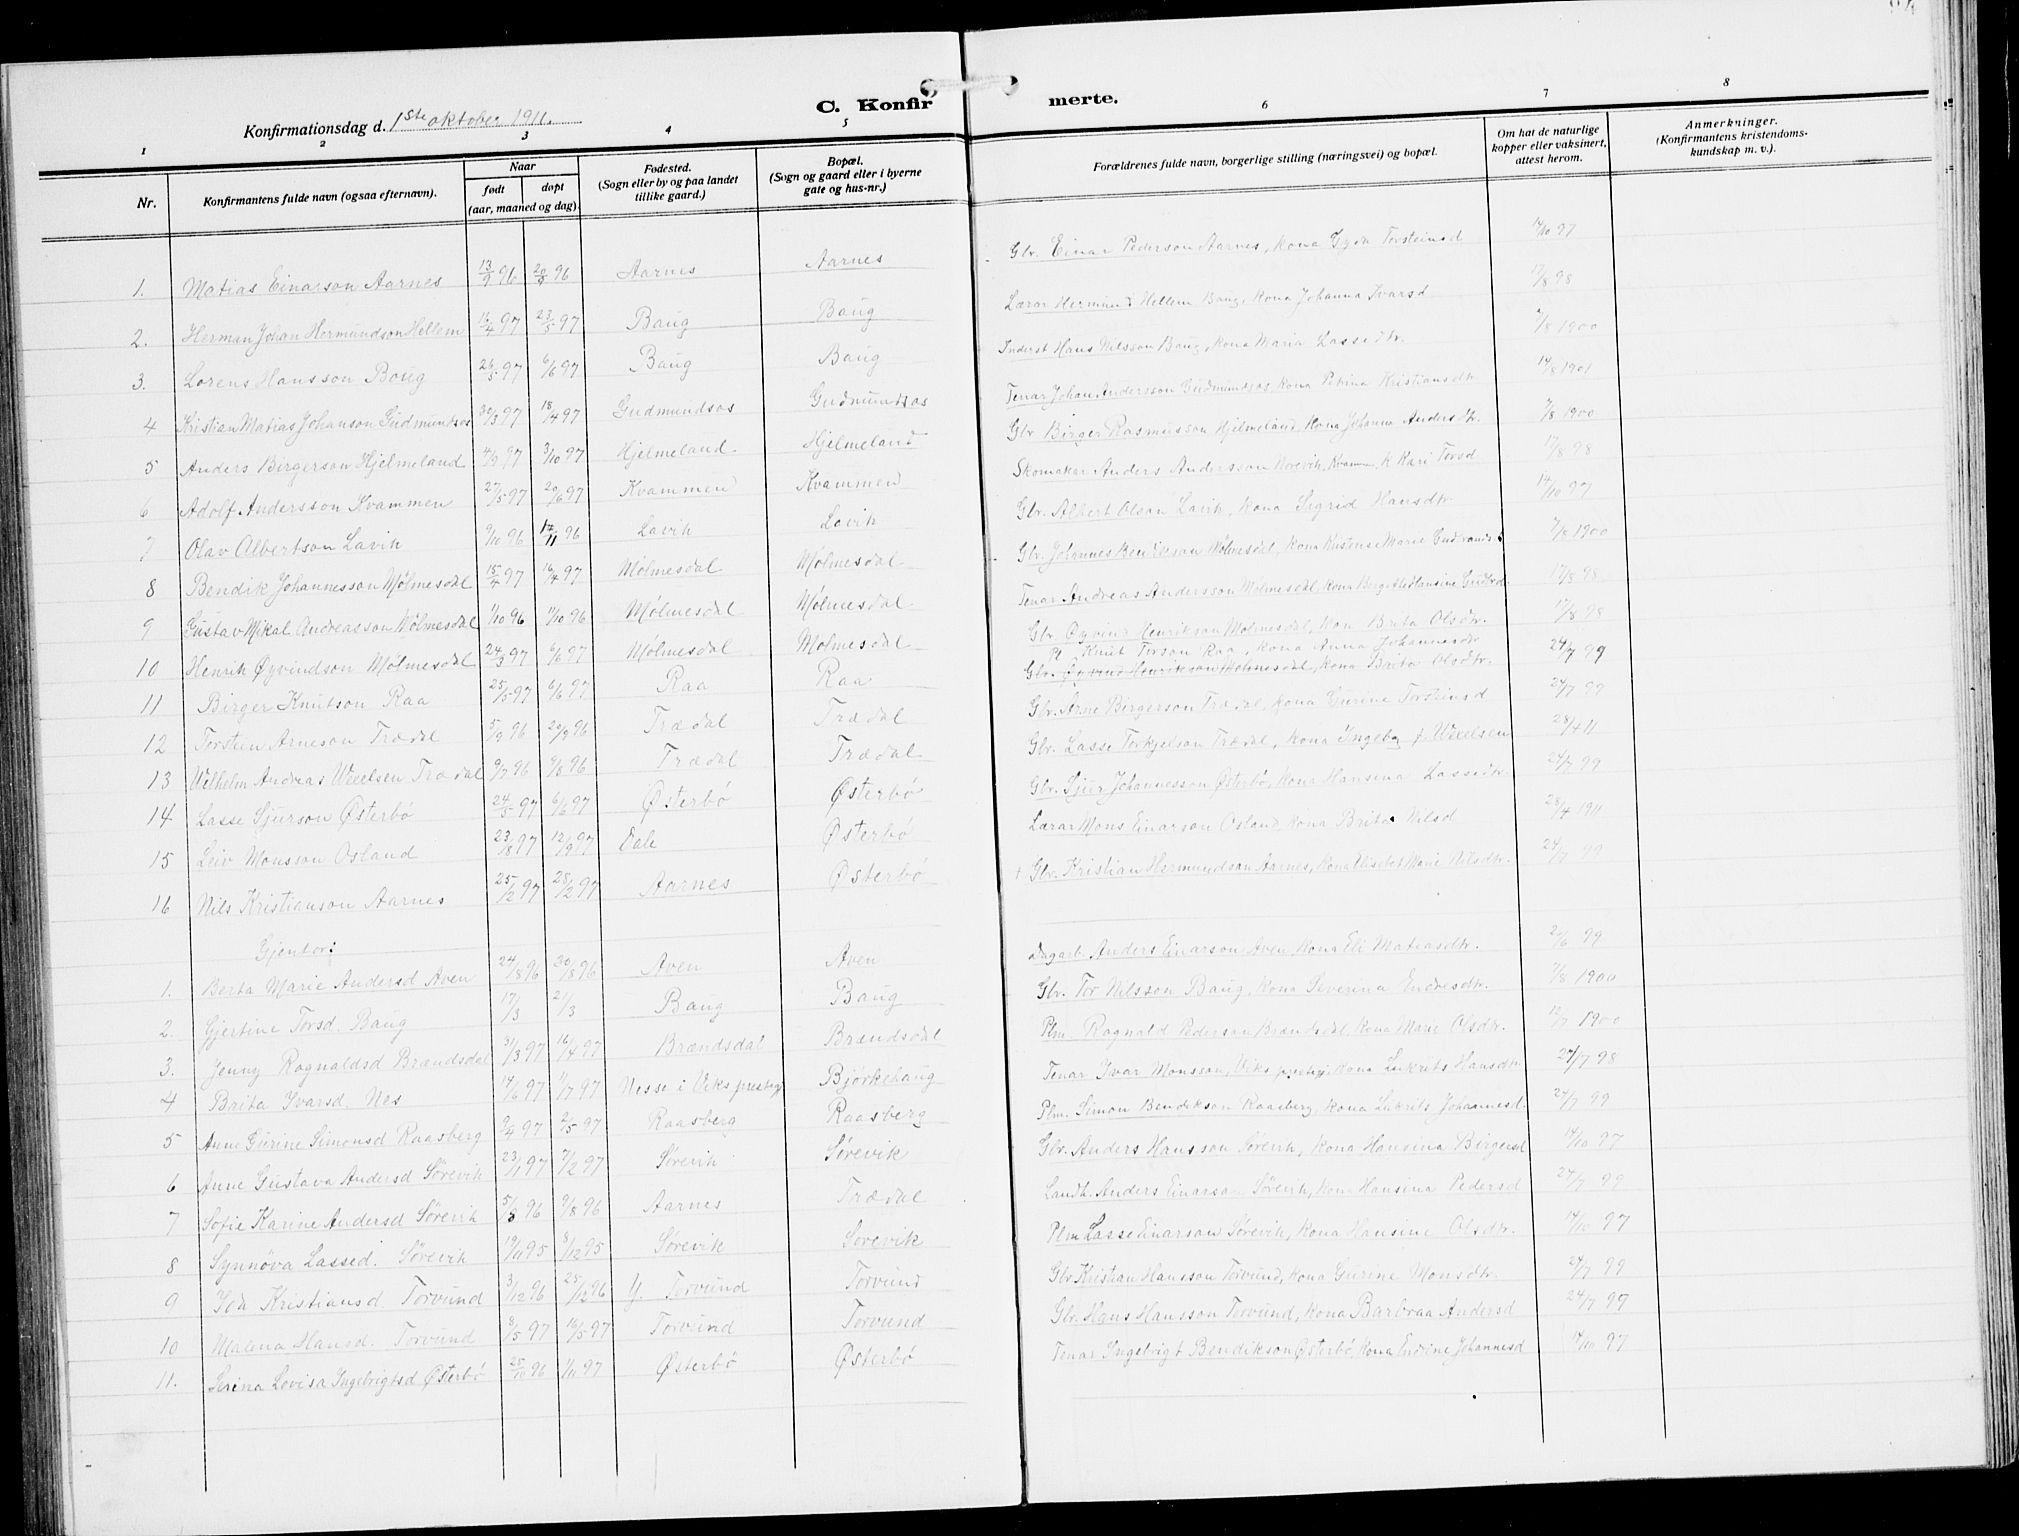 C. Konfirmerte.
Konfirmationsdag d. 1ste oktober 1911.
1 2 3 4 5 6 7 8
Nr. Konfirmantens fulde navn (ogsaa efternavn). Naar født døpt (aar, maaned og dag). Fødested. (Sogn eller by og paa landet tillike gaard.) Bopæl. (Sogn og gaard eller i byerne gate og hus-nr.) Forældrenes fulde navn, borgerlige stilling (næringsvei) og bopæl. Om hat de naturlige kopper eller vaksinert, attest herom. Anmerkninger. (Konfirmantens kristendomskundskap m. v.).
1. Matias Einarson Aarnes 13/9 96 20/9 96 Aarnes Aarnes Gbr. Einar Pederson Aarnes, kona Gyda Torsteinsd 14/10 97
2. Herman Johan Hermundson Hellem 16/4 97 23/5 97 Baug Baug Lærar Hermund Hellem Baug, kona Johanna Ivarsd 17/8 98
3. Lorens Hansson Baug 26/5 97 6/6 97 Baug Baug Inderst Hans Nilsson Baug, kona Maria Lassedtr. 7/8 1900
4 Kristian Matias Johanson Gudmundsos 30/3 97 18/4 97 Gudmundsos Gudmundsos Tenar Johan Andersson Gudmundsos kona Petrina Kristiansdtr 14/8 1901
5 Anders Birgerson Hjelmeland 4/9 97 3/10 97 Hjelmeland Hjelmeland Gbr Birger Rasmusson Hjelmeland, kona Johanna Andersdtr. 7/8 1900
6 Adolf Andersson Kvammen 27/5 97 20/6 97 Kvammen Kvammen Skomakar Anders Andersson Norevik, Kvamm, k Kari Torsd 17/8 98
7 Olav Albertson Lavik 9/10 96 17/11 96 Lavik Lavik Gbr. Albert Olson Lavik, kona Sigrid Hansdtr 14/10 97
8 Bendik Johannesson Mølmesdal 15/4 97 16/4 97 Mølmesdal Mølmesdal Gbr. Johannes Bendikson Mølmesdal, kona Kristense Marie 7/8 1900
9 Gustav Mikal Andreasson Mølmesdal 1/10 96 11/10 96 Mølmesdal Mølmesdal Tenar Andreas Andersson Mølmesdal, kona 17/8 98
10 Henrik Øyvindson Mølmesdal 24/3 97 6/6 97 Mølmesdal Mølmesdal Gbr. Øyvind Henrikson Mølmesdal, kon Brita Olsdtr. 17/8 98
Pl Knut Torson Raa, kona Anna Johannesdtr
11 Birger Knutson Raa 25/5 97 6/6 97 Raa Raa Gbr. Øyvind Henrikson Mølmesdal, kona Brita Olsdtr. 24/7 99
12 Torstein Arneson Trædal 5/9 96 20/9 96 Trædal Trædal Gbr. Arne Birgerson Trædal, kona Gurine Torsteinsd 24/7 99
13 Wilhelm Andreas Wexelsen Trædal 9/7 96 9/8 96 Trædal Trædal Gbr. Lasse Torkjelson Trædal, kona Ingebg f. Wexelsen 28/4 11
14 Lasse Sjurson Østerbø 24/5 97 6/6 97 Østerbø Østerbø Gbr. Sjur Johannesson Østerbø, kona Hansina Lassedtr. 24/7 99
15 Leiv Monsson Osland 23/8 97 12/9 97 Dale Østerbø Lærar Mons Einarson Osland, kona Brita Nilsd 28/4 1911
16 Nils Kristianson Aarnes 25/12 97 28/2 97 Aarnes Østerbø Gbr. Kristian Hermundson Aarnes, kona Elisabet Marie Nilsdtr. 24/7 99
Gjentor:
1. Berta Marie Andersd Aven 24/8 96 30/8 96 Aven Aven Dagarb. Anders Einarson Aven, kona Eli Matiasdtr. 24/6 99
2. Gjertine Torsd. Baug 17/3 21/3 Baug Baug Gbr. Tor Nilsson Baug, kona Severina Endresdtr. 7/8 1900
3. Jenny Ragnaldsd Brændsdal 31/3 97 16/4 97 Brændsdal Brændsdal Plm. Ragnald Pederson Brændsdal, kona Marie Olsdtr. 12/7 1900
4 Brita Ivarsd. Nes 14/6 97 11/7 97 Nesse i Viks prestegj Bjørkehaug Tenar Ivar Monsson, Viks prestegj. kona Lukrits Hansdtr 27/7 98
5 Anne Gurine Simonsd Raasberg 9/4 97 2/5 97 Raasberg Raasberg Plm. Simon Bendikson Raasberg, kona Lukrits Johannesd. 24/7 99
6 Anne Gustava Andersd Sørevik 23/1 97 7/2 97 Sørevik Sørevik Gbr. Anders Hansson Sørevik, kona Hansina Birgersd 14/10 97
7 Sofie Karine Andersd Sørevik 5/8 96 9/8 96 Aarnes Trædal Landh. Anders Einarson Sørevik, kona Hansina Pedersd 24/7 99
8 Synnøva Lassed. Sørevik 19/11 95 8/12 95 Sørevik Sørevik Plm Lasse Einarson Sørevik, kona Hansine Olsdtr. 14/10 97
9 Ida Kristiansd Torvund 3/12 96 25/12 96 Y. Torvund Torvund Gbr Kristian Hansson Torvund, kona Gurine Monsdtr. 24/7 99
10 Malena Hansd. Torvund 8/5 97 16/5 97 Torvund Torvund Gbr. Hans Hansson Torvund, kona Barbraa Andersd 24/7 99
11. Serina Lovisa Ingebrigtsd Østerbø 25/10 96 1/11 97 Østerbø Østerbø Tenar Ingebrigt Bendikson Østerbø, kona Endrine Johannesd 14/10 97